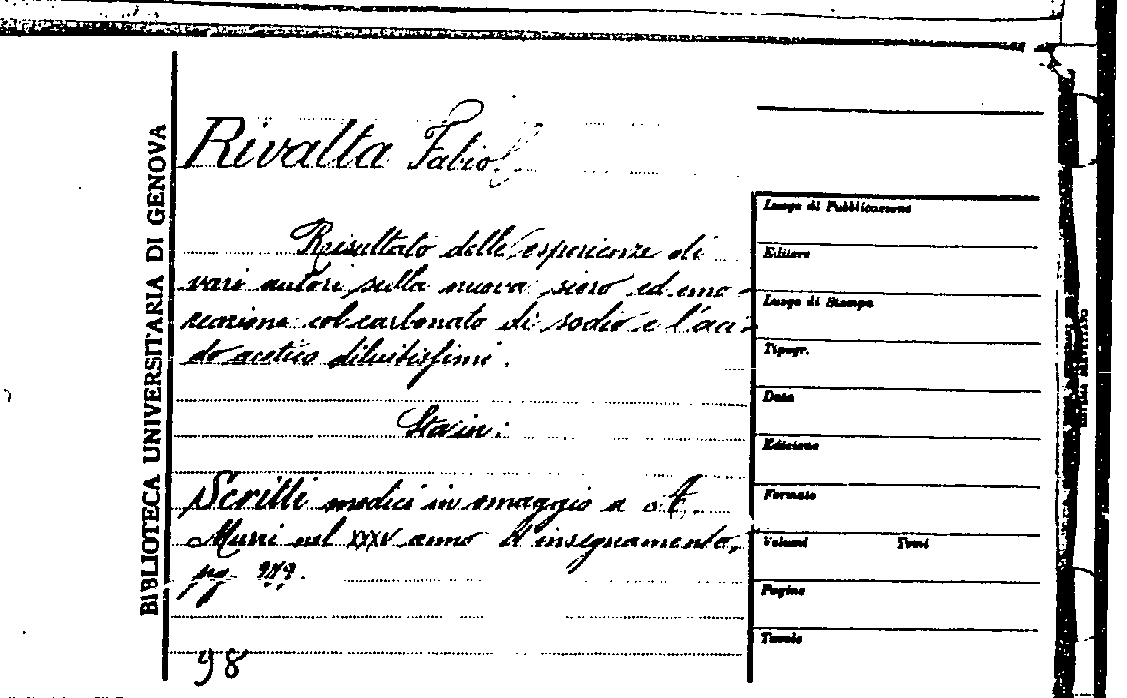 BIBLIOTECA UNIVERSITARIA DI GENOVA
Rivalta Fabio
Risultato delle esperienze di
vari autori sulla nuova siero ed emo-
reazione col carbonato di sodio e l'aci-
do acetico diluitissimi.
Sta in:
Scritti medici in omaggio a A.
Murri nel XXXV anno d'insegnamento,
pg.
98
Luogo di Pubblicazione
Editore
Luogo di Stampa
Tipogr.
Data
Edizione
Formato
Volumi Tomi
Pagine
Tavole